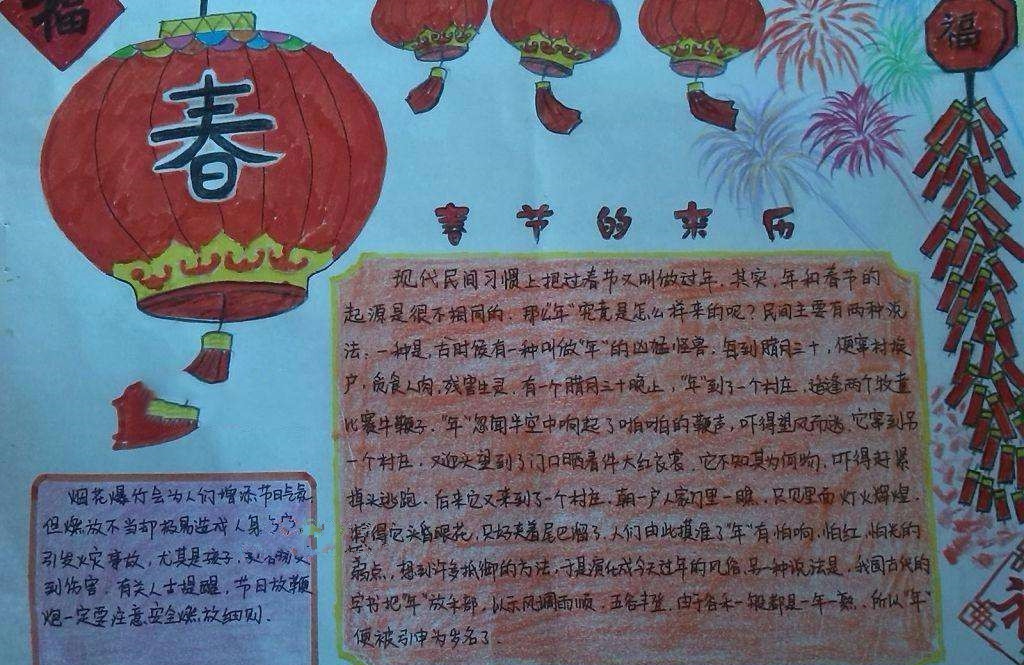 福
春
福
春节的来历
现代民间习惯上把过春节又叫做过年。其实，年和春节的
起源是很不相同的。那么“年”究竟是怎么样来的呢？民间主要有两种说
法：一种是，古时候有一种叫做“年”的凶猛怪兽，每到腊月三十，便窜村挨
户，觅食人肉，残害生灵。有一个腊月三十晚上，“年”到了一个村庄，适逢两个牧童
比赛牛鞭子。“年”忽闻半空中响起了啪啪的鞭声，吓得望风而逃。它窜到另
一个村庄，又迎头望到了门口晒着件大红衣裳，它不知其为何物，吓得赶紧
掉头逃跑。后来它又来到了一个村庄，朝一户人家门里一瞧，只见里面灯火辉煌，
得它头昏眼花，只好夹着尾巴溜了。人们由此摸准了“年”有怕响，怕红，怕光的
弱点，想到许多抵御的方法，于是演化成今天过年的风俗。另一种说法是，我国古代的
字书把“年”放禾部，以示风调雨顺，五谷丰登。由于谷禾一般都是一年一熟。所以“年”
便被引申为岁名了。
烟花爆竹会为人们增添节日气氛
但燃放不当却极易造成人身
引发火灾事故，尤其是孩子，
到伤害。有关人士提醒，节日放鞭
炮一定要注意安全燃放细则。